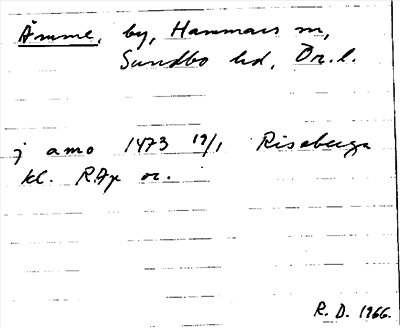 Åmme, by, Hammars sn,
Sundbo hd, Ör. l.
j amo 1473 19/1 Riseberga
kl. RAp or.
R. D. 1966.